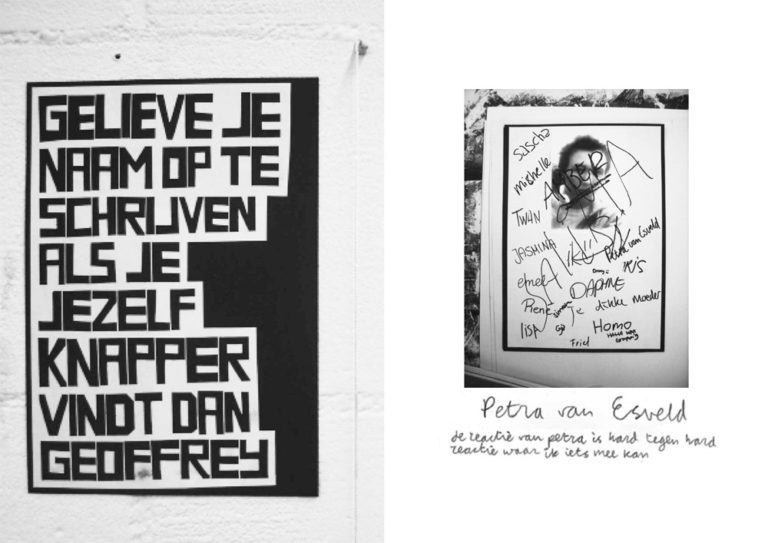 GELIEVE JE
NAAM OP TE
SCHRIJVEN
ALS JE
JEZELF
KNAPPER
VINDT DAN
GEOFFREY
sascha
mishelle
TWAN
JASMINA
Petra van Esveld
iris
emee
DAPHNE
René
je dikke moeder
lisa
Homo
Friet
Petra van Esveld
de reactie van petra is hard tegen hard
reactie waar ik iets mee kan